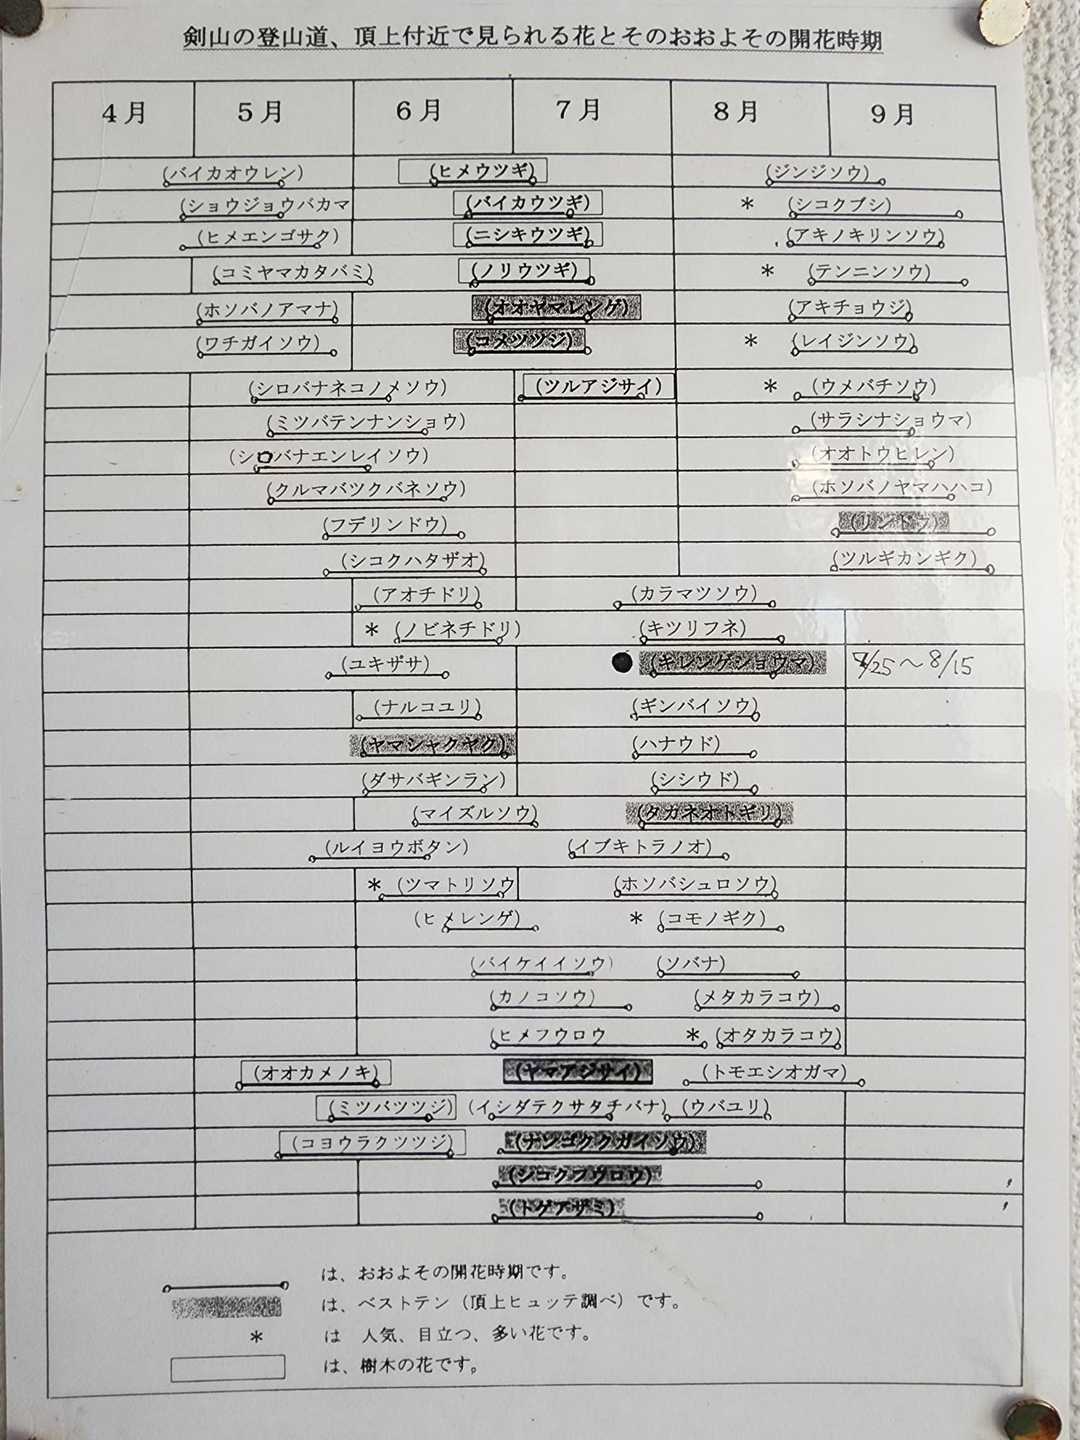 剣山の登山道、頂上付近で見られる花とそのおおよその開花時期
4月 5月 6月 7月 8月 9月
(バイカオウレン) (ヒメウツギ) (ジンジソウ)
(ショウジョウバカマ (バイカウツギ) * (シコクブシ)
(ヒメエンゴサク) (ニシキウツギ) (アキノキリンソウ)
(コミヤマカタバミ) (ノリウツギ) * (テンニンソウ)
(ホソバノアマナ) (オオヤマレンゲ) (アキチョウジ)
(ワチガイソウ) (コメツツジ) * (レイジンソウ)
(シロバナネコノメソウ) (ツルアジサイ) * (ウメバチソウ)
(ミツバテンナンショウ) (サラシナショウマ)
(シロバナエンレイソウ) (オオトウヒレン)
(クルマバツクバネソウ) (ホソバノヤマハハコ)
(フデリンドウ) (リンドウ)
(シコクハタザオ) (ツルギカンギク)
(アオチドリ) (カラマツソウ)
* (ノビネチドリ) (キツリフネ)
(ユキザサ) ● (キレンゲショウマ) 7/25〜8/15
(ナルコユリ) (ギンバイソウ)
(ヤマシャクヤク) (ハナウド)
(ダサバギンラン) (シシウド)
(マイズルソウ) (タカネオトギリ)
(ルイヨウボタン) (イブキトラノオ)
* (ツマトリソウ (ホソバシュロソウ)
(ヒメレンゲ) * (コモノギク)
(バイケイイソウ) (ソバナ)
(カノコソウ) (メタカラコウ)
(ヒメフウロウ * (オタカラコウ)
(オオカメノキ) (ヤマアジサイ) (トモエシオガマ)
(ミツバツツジ) (イシダテクサタチバナ) (ウバユリ)
(コヨウラクツツジ) (ナンゴククガイソウ)
(シコクフウロウ)
(トゲアザミ)
は、おおよその開花時期です。
は、ベストテン(頂上ヒュッテ調べ)です。
* は 人気、目立つ、多い花です。
は、樹木の花です。